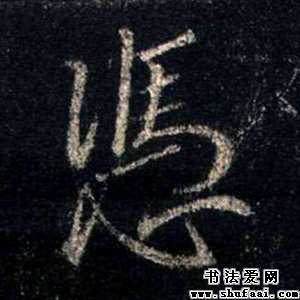 憑
书法爱网
www.shufaai.com